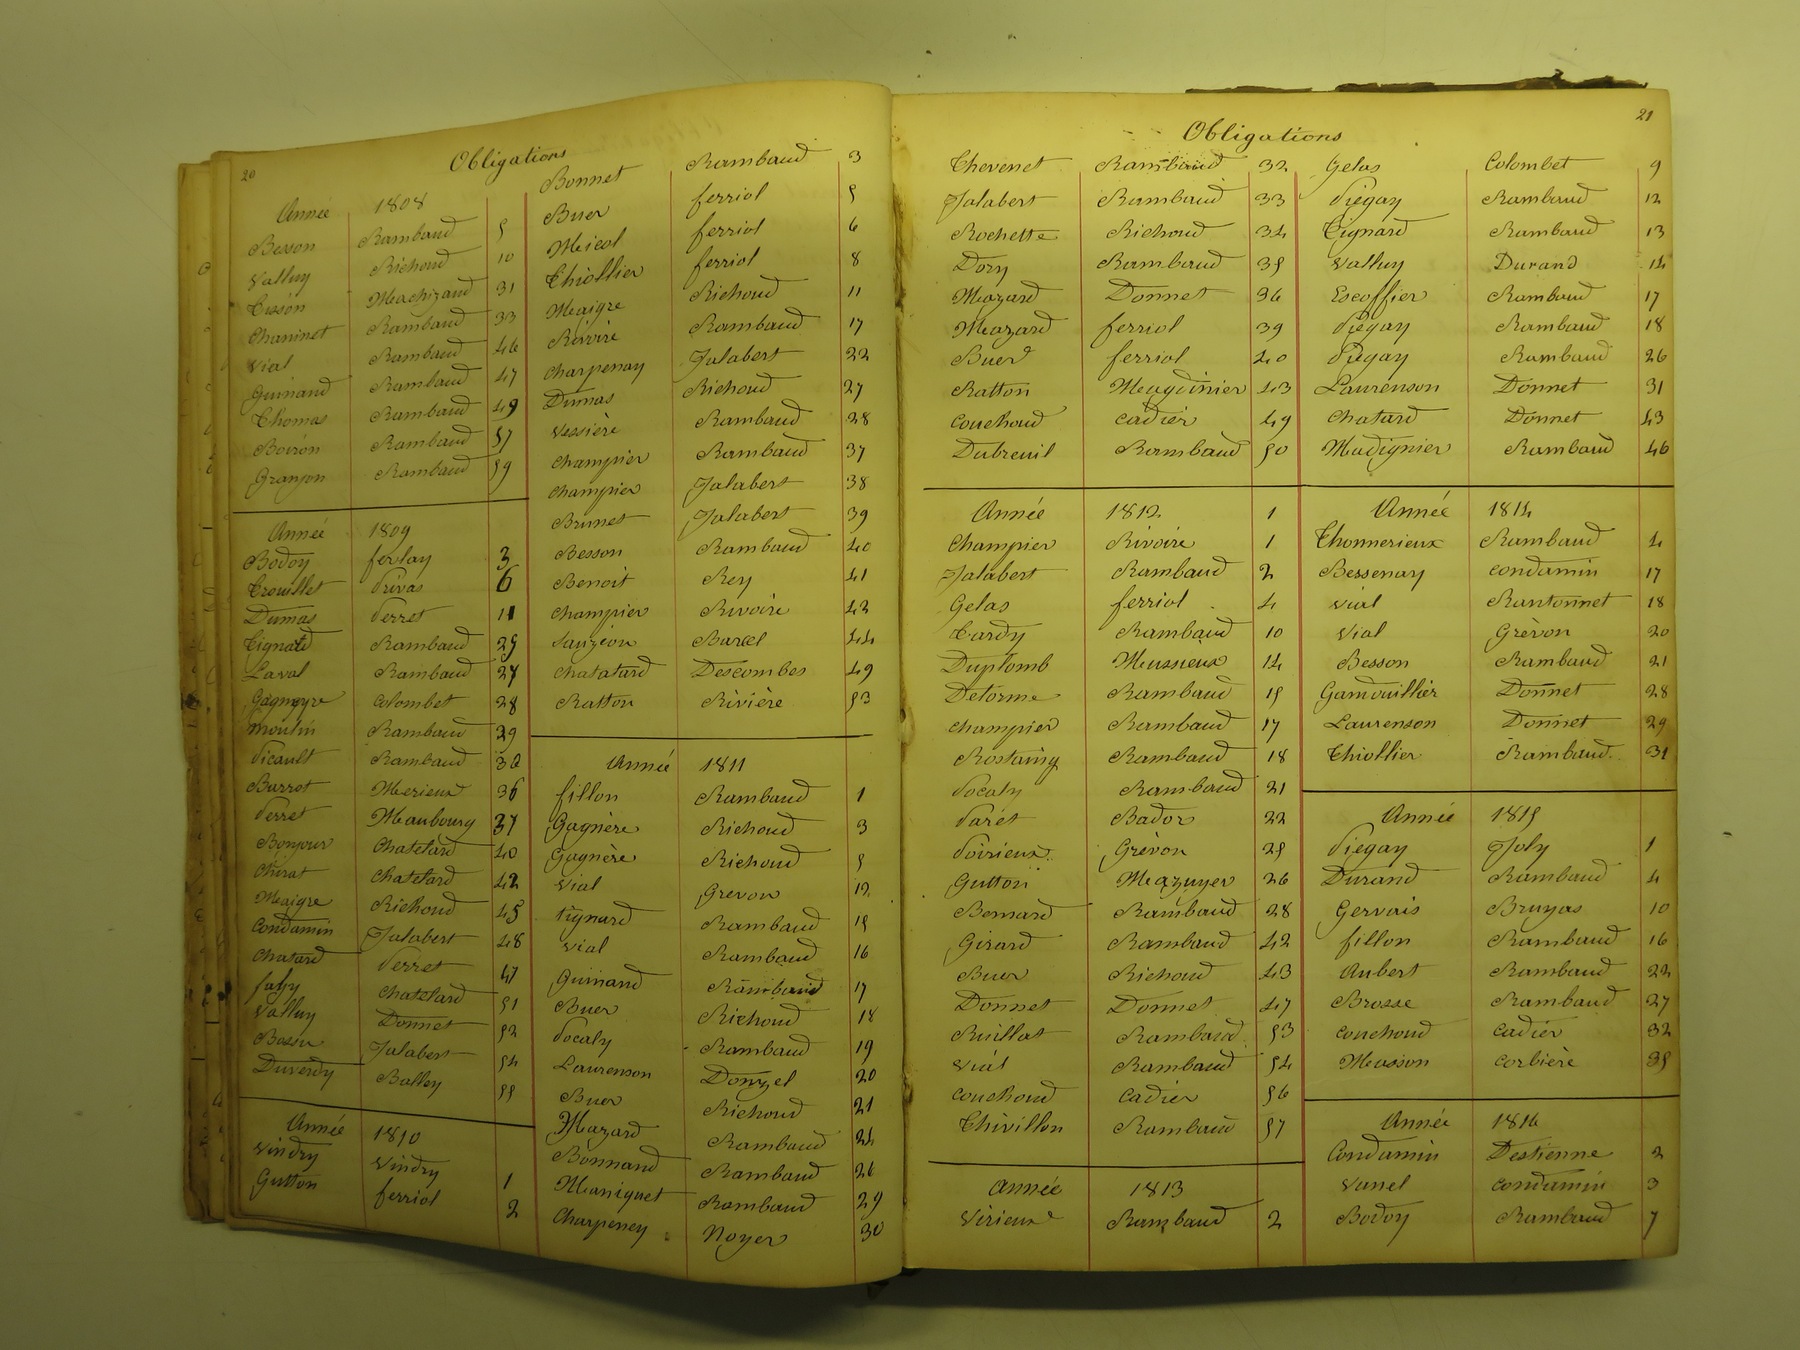 20
Obligations
Année 1808
Besson Rambaud 5
Valluy Richoud 10
Tisson Machizaud 31
Chaninet Rambaud 33
Vial Rambaud 46
Guinand Rambaud 47
Thomas Rambaud 49
Boiron Rambaud 57
Granjon Rambaud 59
Année 1809
Bodoy ferlay 3
Trouillet Privas 6
Dumas Perret 11
Tignard Rambaud 25
Laval Rambaud 27
Gagneyre Colombet 28
Moulin Rambaud 29
Picault Rambaud 32
Burrot Merieux 36
Perret Maubourg 37
Bonjour Chatelard 40
Chirat Chatelard 42
Maigre Richoud 45
Condamin Jalabert 48
Chatard Perret 47
faby Chatelard 51
Valluy Donnet 52
Bossu Jalabert 54
Duverdy Balley 55
Année 1810
Vindry Vindry 1
Gutton ferriol 2
Bonnet Rambaud 3
Buer ferriol 5
Micol ferriol 6
Thiollier ferriol 8
Maigre Richoud 11
Rivoire Rambaud 17
Charpenay Jalabert 22
Dumas Richoud 27
Vessière Rambaud 28
Champier Rambaud 37
Champier Jalabert 38
Brunet Jalabert 39
Besson Rambaud 40
Benoit Rey 41
Champier Rivoire 42
Sauzéon Burel 44
Chatatard Descombes 49
Ratton Rivière 53
Année 1811
fillon Rambaud 1
Gagnère Richoud 3
Gagnère Richoud 5
Vial Grevon 12
Tignard Rambaud 15
Vial Rambaud 16
Guinand Rambaud 17
Buer Richoud 18
Pocaly Rambaud 19
Laurenson Donzel 20
Buer Richoud 21
Mazard Rambaud 24
Bonnand Rambaud 26
Maniquet Rambaud 29
Charpeney Noyer 30
21
Obligations
Thevenet Rambaud 32
Jalabert Rambaud 33
Rochette Richoud 34
Dory Rambaud 35
Mazard Donnet 36
Mazard ferriol 39
Buer ferriol 40
Ratton Maygdinier 43
Couchoud Cadier 49
Dubreuil Rambaud 50
Année 1812 1
Champier Rivoire 1
Jalabert Rambaud 2
Gelas ferriol 4
Tardy Rambaud 10
Duplomb Mussieux 14
Delorme Rambaud 15
Champier Rambaud 17
Rostaing Rambaud 18
Pocaly Rambaud 21
Paret Bador 22
Poirieux Grèvon 25
Gutton Mazuyer 26
Bernard Rambaud 28
Girard Rambaud 42
Buer Richoud 43
Donnet Donnet 47
Ruillat Rambaud 53
Vial Rambaud 54
Couchoud Cadier 56
Thivillon Rambaud 57
Année 1813
Virieux Rambaud 2
Gelas Colombet 9
Piegay Rambaud 12
Tignard Rambaud 13
Valluy Durand 14
Escoffier Rambaud 17
Piegay Rambaud 18
Piegay Rambaud 26
Laurenson Donnet 31
Chatard Donnet 43
Madignier Rambaud 46
Année 1814
Thonnerieux Rambaud 4
Bessenay Condamin 17
Vial Rantonnet 18
Vial Grèvon 20
Besson Rambaud 21
Gamouillier Donnet 28
Laurenson Donnet 29
Thiollier Rambaud 31
Année 1815
Piegay Joly 1
Durand Rambaud 4
Gervais Bruyas 10
fillon Rambaud 16
Aubert Rambaud 22
Brosse Rambaud 27
Couchoud Cadier 32
Masson Corbière 35
Année 1816
Condamin Destienne 2
Vanel Condamin 3
Bodoy Rambaud 7